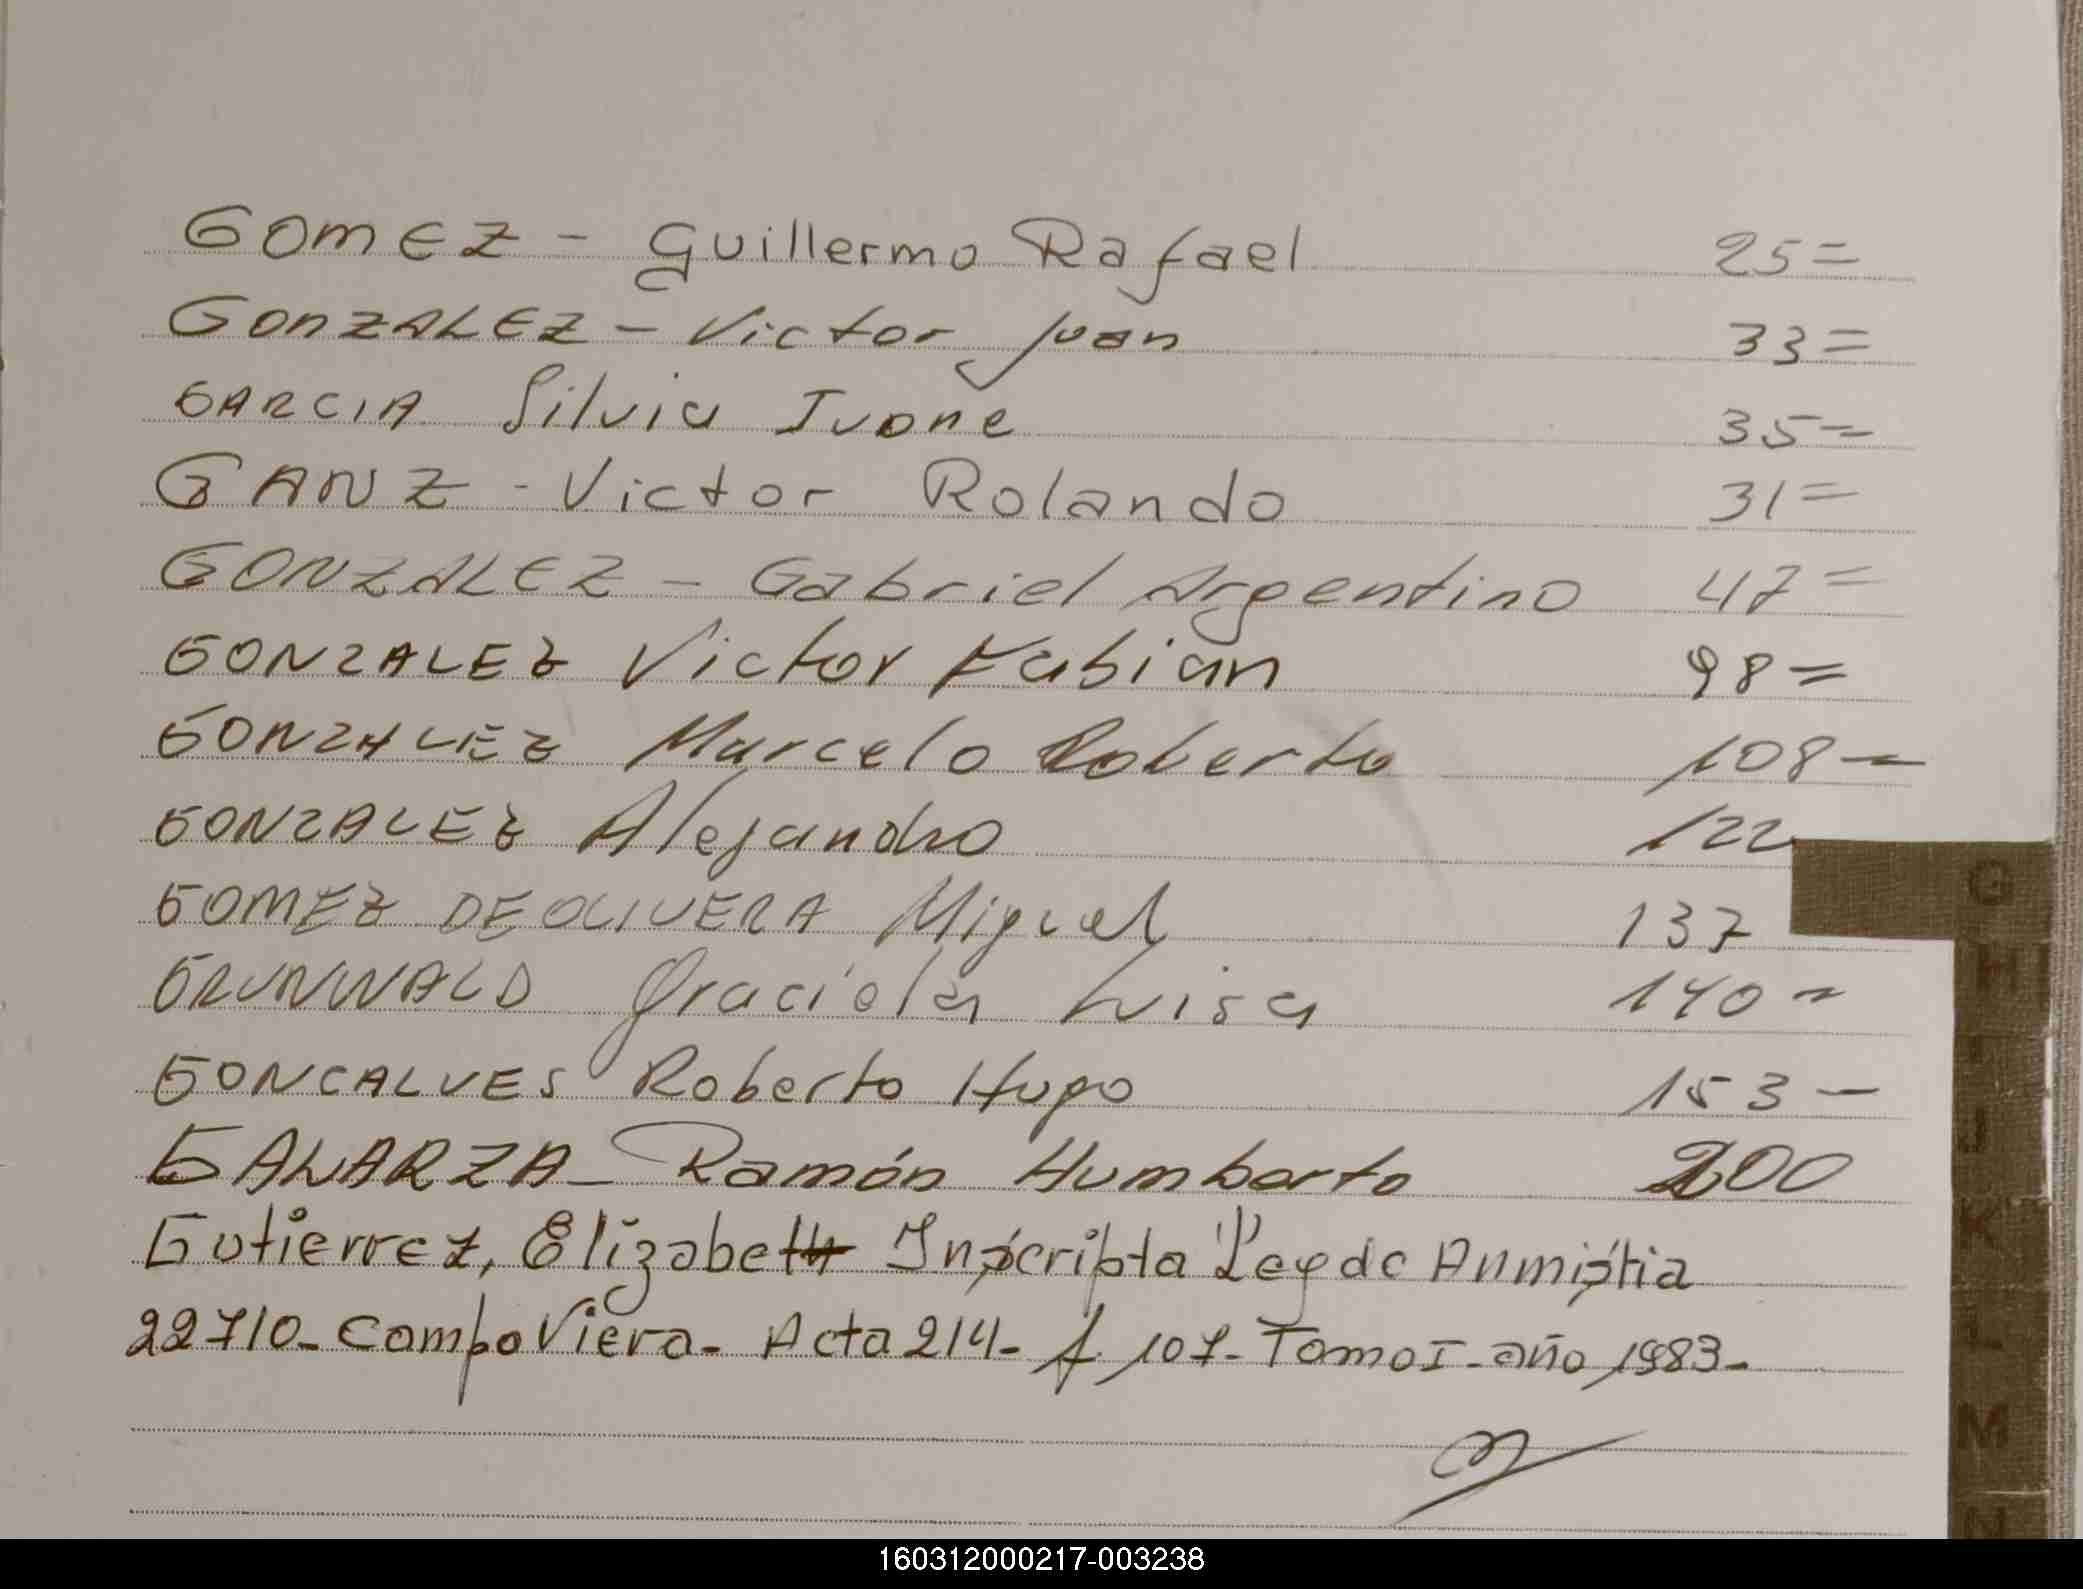 GOMEZ - Guillermo Rafael 25=
GONZALEZ - Victor Juan 33=
GARCIA Silvia Ivone 35=
GANZ - Victor Rolando 31=
GONZALEZ - Gabriel Argentino 47=
GONZALEZ Victor Fabian 98=
GONZALEZ Marcelo Roberto 108=
GONZALEZ Alejandro 122
GOMEZ DEOLIVERA Miguel 137
GRUNWALD Graciela Luisa 140=
GONCALVES Roberto Hugo 153-
GALARZA - Ramón Humberto 200
Gutierrez, Elizabeth Inscripta Ley de Anmistia
22710- Campo Viera- Acta 214- f. 107- Tomo I- año 1983-
G
H
I
J
K
L
M
N
160312000217-003238